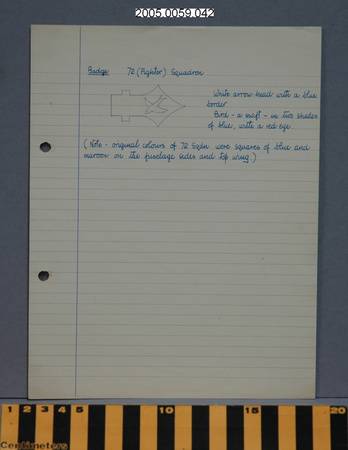 2005.0059.042
Badge: 72 (Fighter) Squadron
White arrow head with a blue
border.
Bird - a swift - in two shades
of blue, with a red eye.
(Note - original colours of 72 Sqdn were squares of blue and
maroon on the fuselage sides and top wing.)
1 2 3 4 5 10 15 20
Centimeters